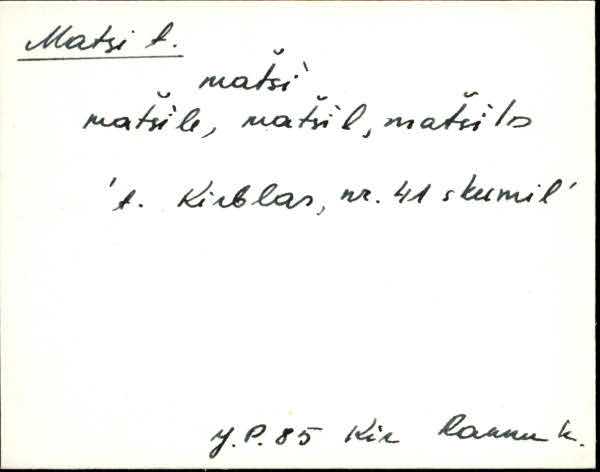 Matsi t.
matši`
matšile, matšil, matšilo
't. Kirblas, nr. 41 skeemil'
J.P. 85 Kir Rannu k.